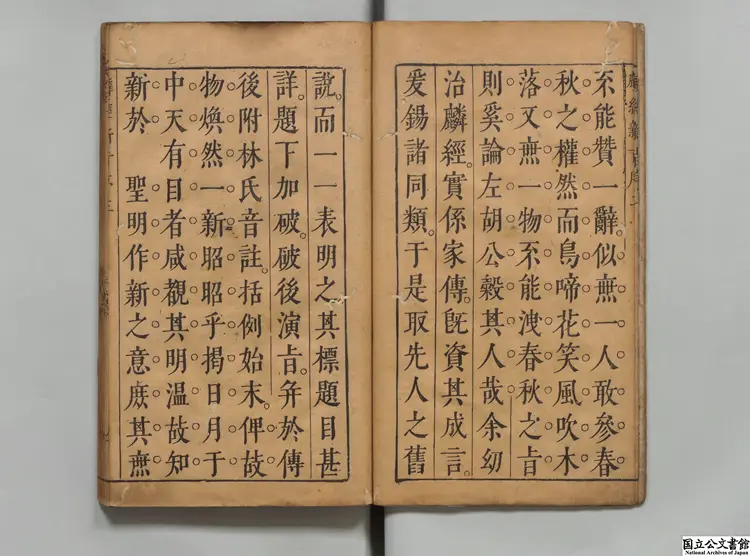 不能贊一辭似無一人敢參春
秋之權然而鳥啼花笑風吹木
落又無一物不能洩春秋之旨
則奚論左胡公穀其人哉余幼
治麟經實係家傳旣資其成言
爰錫諸同類于是取先人之舊
說而一一表明之其標題目甚
詳題下加破破後演旨弁於傳
後附林氏音註括例始末俾故
物煥然一新昭昭乎揭日月于
中天有目者咸覩其明溫故知
新於 聖明作新之意庶其無
国立公文書館
National Archives of Japan